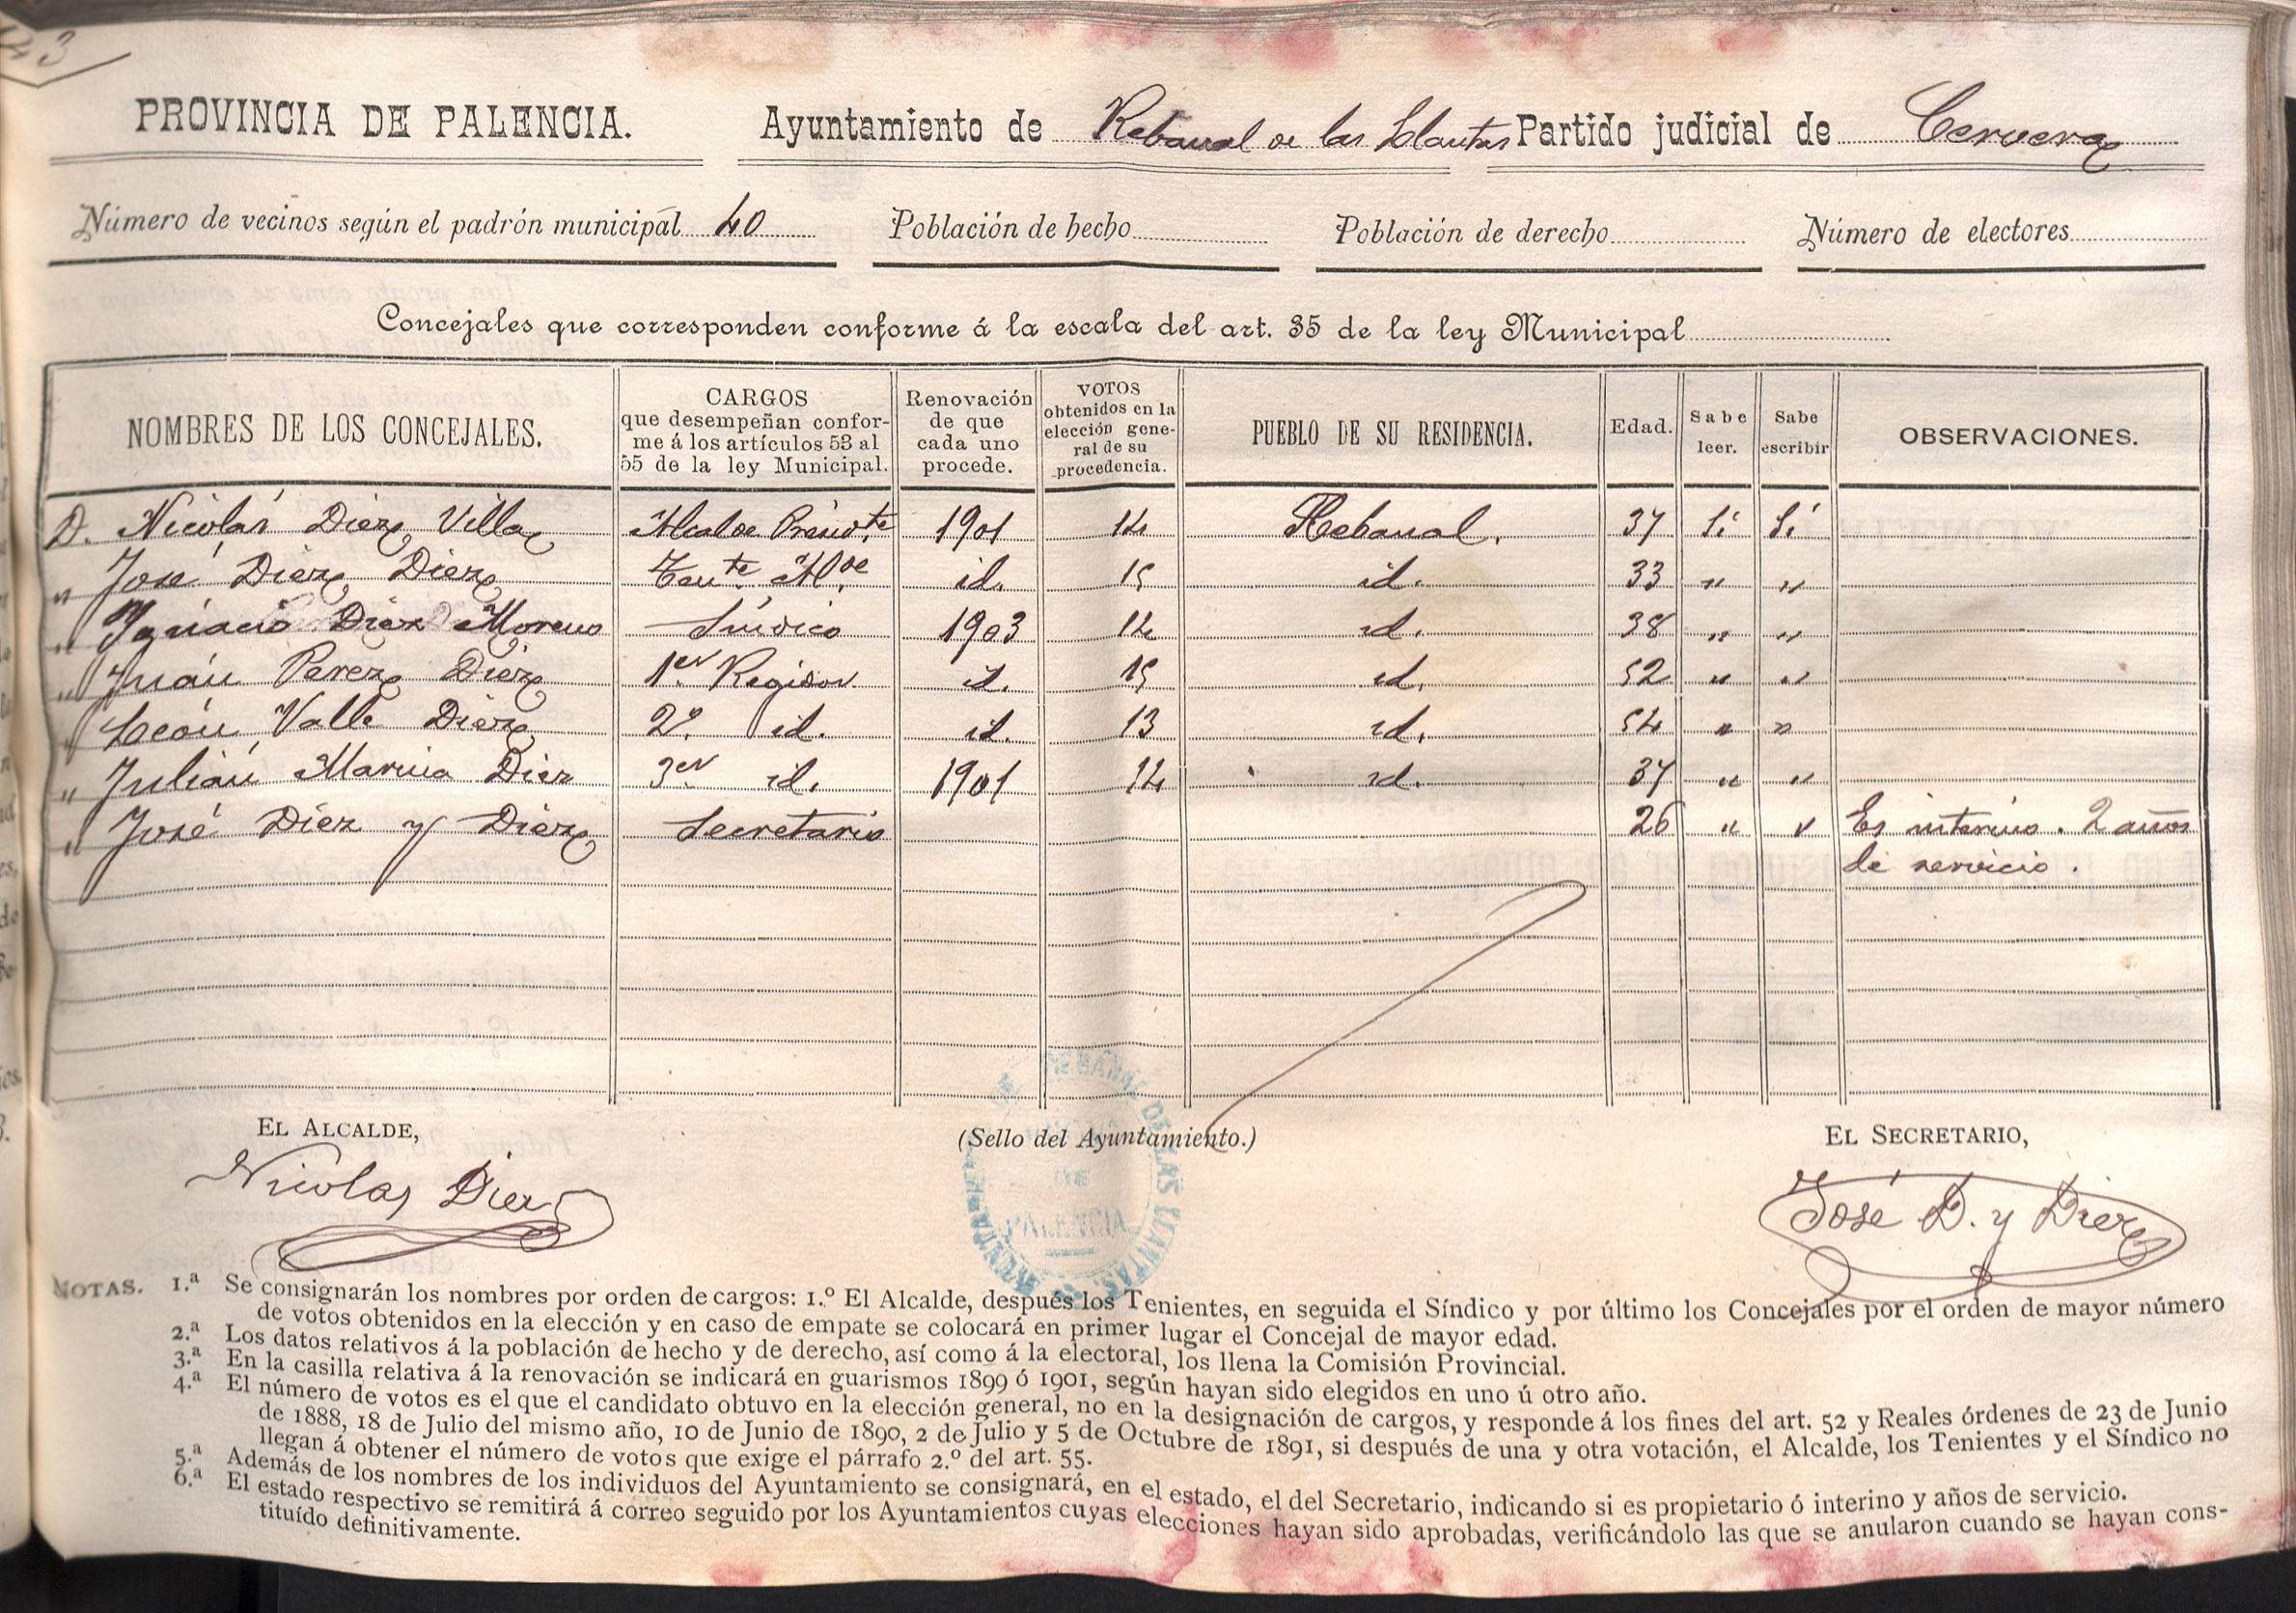 43
PROVINCIA DE PALENCIA. Ayuntamiento de Rebanal de las Llantas Partido judicial de Cervera
Número de vecinos según el padrón municipal 40 Población de hecho Población de derecho Número de electores
Concejales que corresponden conforme á la escala del art. 35 de la ley Municipal
NOMBRES DE LOS CONCEJALES. CARGOS que desempeñan conforme á los artículos 53 al 55 de la ley Municipal. Renovación de que cada uno procede. VOTOS obtenidos en la elección general de su procedencia. PUEBLO DE SU RESIDENCIA. Edad. Sabe leer. Sabe escribir OBSERVACIONES.
D. Nicolás Diez Villa Alcalde Presid.te 1901 14 Rebanal. 37 Sí Sí
„ José Diez Diez Tente. Alde. id. 15 id. 33 „ „
„ Ignacio Diez Moreno Síndico 1903 14 id. 38 „ „
„ Juán Perez Diez 1er. Regidor id. 15 id. 52 „ „
„ León Valle Diez 2º. id. id. 13 id. 54 „ „
„ Julián Marina Diez 3er id. 1901 14 id. 37 „ „
„ José Diez y Diez Secretario 26 „ „ Es interino. 2 años
de servicio.
EL ALCALDE, (Sello del Ayuntamiento.) EL SECRETARIO,
Nicolas Diez José D. y Diez
AYUNTAMIENTO DE REBANAL DE LAS LLANTAS
DE
PALENCIA
NOTAS. 1.ª Se consignarán los nombres por orden de cargos: 1.º El Alcalde, después los Tenientes, en seguida el Síndico y por último los Concejales por el orden de mayor número
de votos obtenidos en la elección y en caso de empate se colocará en primer lugar el Concejal de mayor edad.
2.ª Los datos relativos á la población de hecho y de derecho, así como á la electoral, los llena la Comisión Provincial.
3.ª En la casilla relativa á la renovación se indicará en guarismos 1899 ó 1901, según hayan sido elegidos en uno ú otro año.
4.ª El número de votos es el que el candidato obtuvo en la elección general, no en la designación de cargos, y responde á los fines del art. 52 y Reales órdenes de 23 de Junio
de 1888, 18 de Julio del mismo año, 10 de Junio de 1890, 2 de Julio y 5 de Octubre de 1891, si después de una y otra votación, el Alcalde, los Tenientes y el Síndico no
llegan á obtener el número de votos que exige el párrafo 2.º del art. 55.
5.ª Además de los nombres de los individuos del Ayuntamiento se consignará, en el estado, el del Secretario, indicando si es propietario ó interino y años de servicio.
6.ª El estado respectivo se remitirá á correo seguido por los Ayuntamientos cuyas elecciones hayan sido aprobadas, verificándolo las que se anularon cuando se hayan cons-
tituído definitivamente.